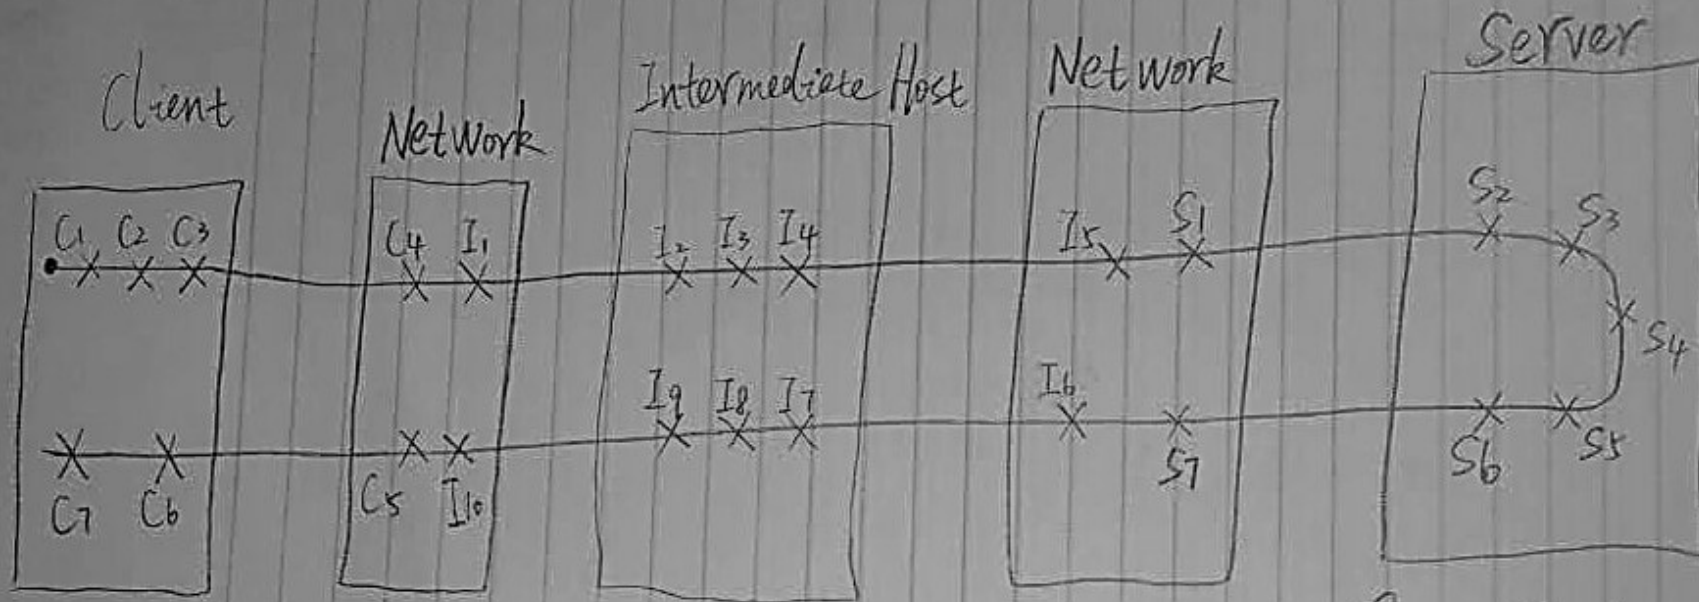 Client
Network
Intermediete Host
Network
Server
C1 C2 C3
C4 I1
I2 I3 I4
I5 S1
S2 S3
S4
S5
S6
S7
I6
I7
I8
I9
I10
C5
C6
C7